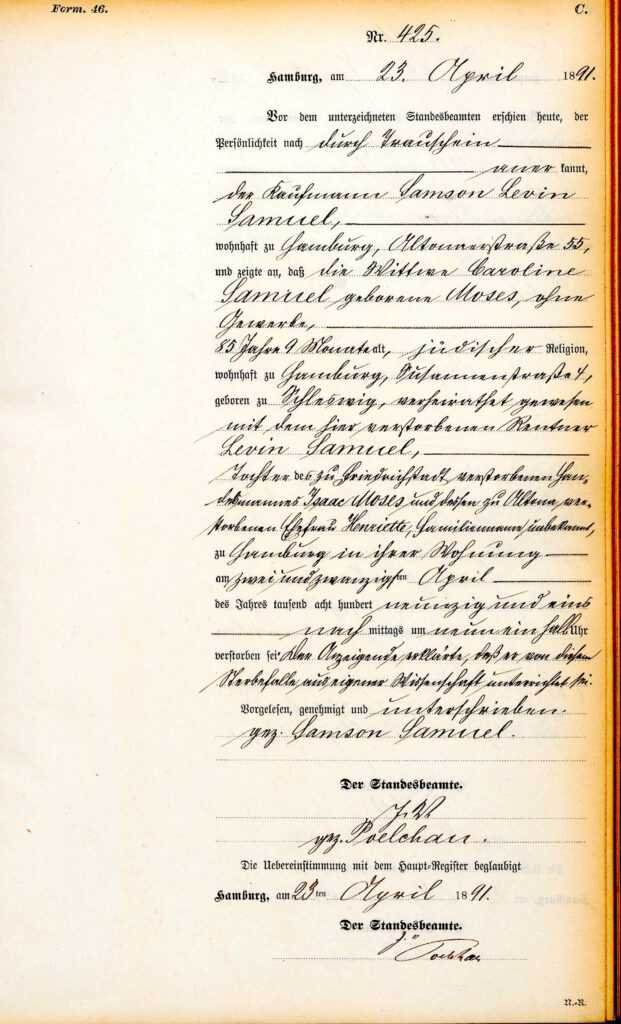 Form. 46. C.
Nr. 425.
Hamburg, am 23. April 1891.
Vor dem unterzeichneten Standesbeamten erschien heute, der
Persönlichkeit nach durch Trauschein
anerkannt,
der Kaufmann Samson Levin
Samuel,
wohnhaft zu Hamburg, Altonaerstraße 55,
und zeigte an, daß die Wittwe Caroline
Samuel geborene Moses, ohne
Gewerbe,
85 Jahre 9 Monate alt, jüdischer Religion,
wohnhaft zu Hamburg, Susannenstraße 4,
geboren zu Schleswig, verheirathet gewesen
mit dem hier verstorbenen Rentner
Levin Samuel,
Tochter des zu Friedrichstadt verstorbenen Han-
delsmannes Isaac Moses und dessen zu Altona ver-
storbenen Ehefrau Henriette, Familienname unbekannt,
zu Hamburg in ihrer Wohnung
am zwei und zwanzigsten April
des Jahres tausend acht hundert neunzig und eins
nach mittags um neun ein halb Uhr
verstorben sei. Der Anzeigende erklärte, daß er von diesem
Sterbefalle aus eigener Wissenschaft unterrichtet sei.
Vorgelesen, genehmigt und unterschrieben.
gez. Samson Samuel.
Der Standesbeamte.
J. V.
gez. Poelchau.
Die Uebereinstimmung mit dem Haupt-Register beglaubigt
Hamburg, am 23ten April 1891.
Der Standesbeamte.
Poelchau
N.-R.